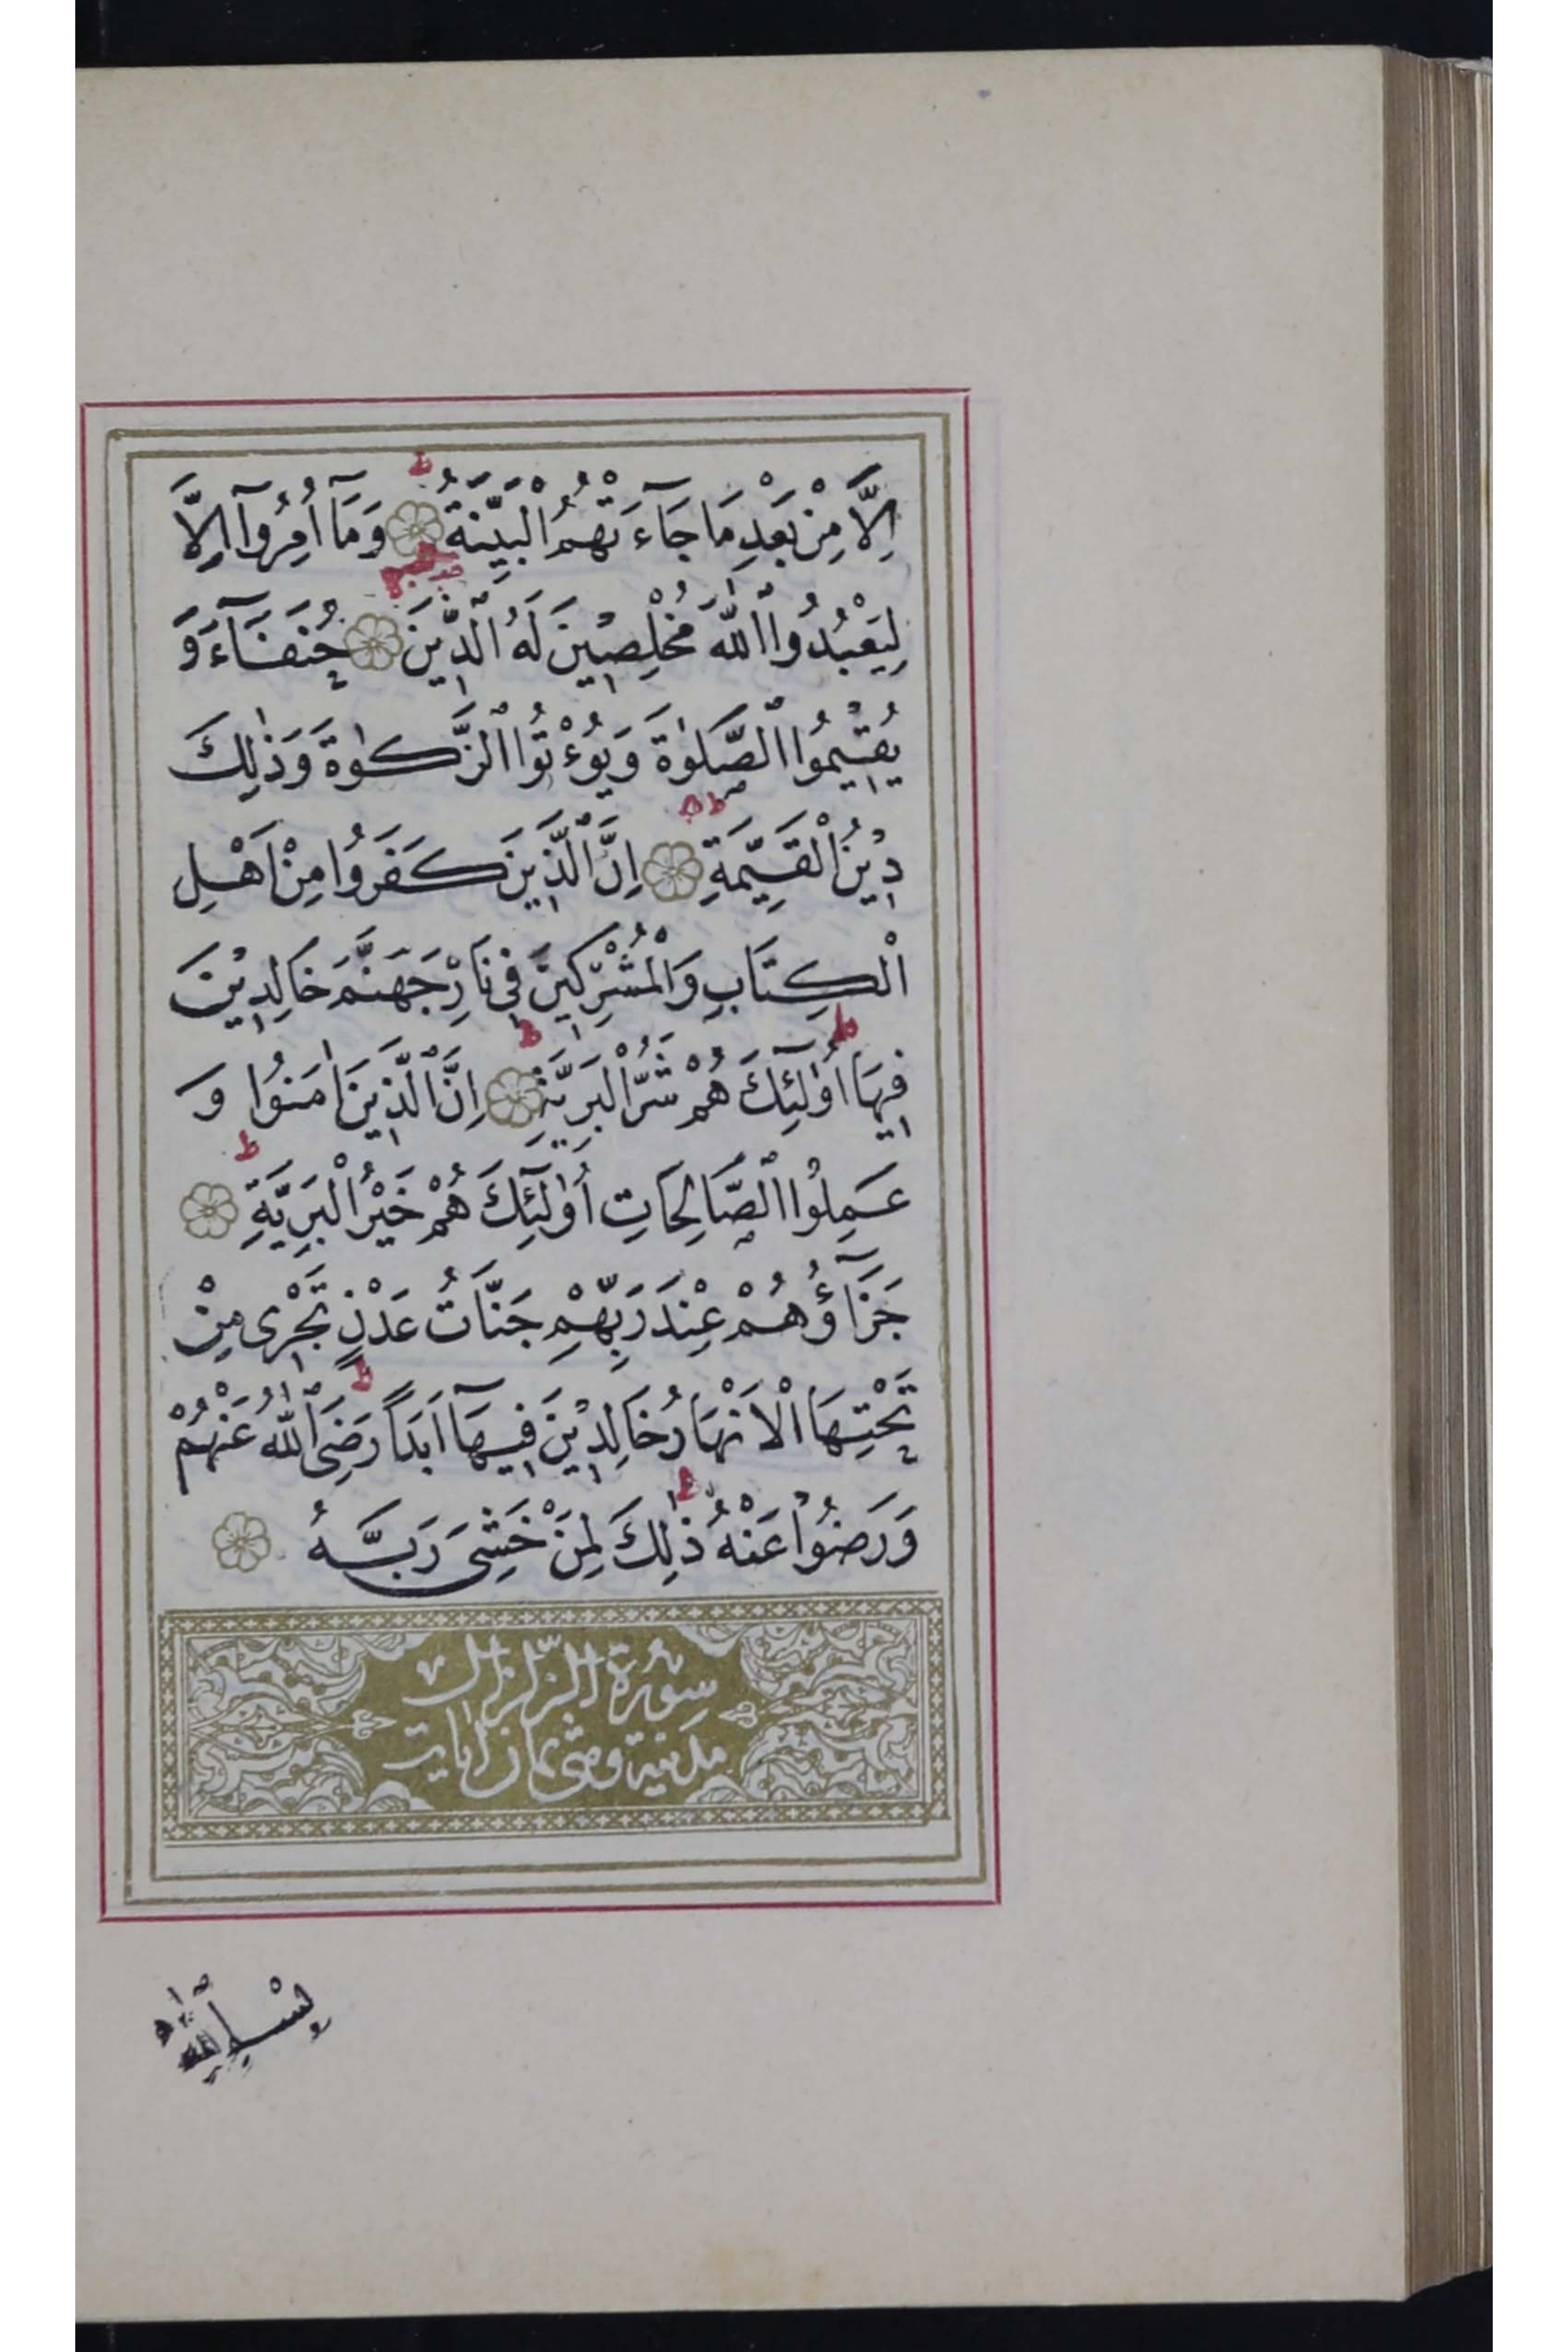 اِلَّا مِنْ بَعْدِ مَا جَآءَتْهُمُ الْبَيِّنَةُ ۝ وَمَآ اُمِرُوآ اِلَّا
لِيَعْبُدُوا اللّٰهَ مُخْلِصِينَ لَهُ الدِّينَ ۝ حُنَفَآءَ وَ
يُقِيمُوا الصَّلٰوةَ وَيُؤْتُوا الزَّكٰوةَ وَذٰلِكَ
دِينُ الْقَيِّمَةِ ۝ اِنَّ الَّذِينَ كَفَرُوا مِنْ اَهْلِ
الْكِتَابِ وَالْمُشْرِكِينَ فِي نَارِ جَهَنَّمَ خَالِدِينَ
فِيهَا اُولٰٓئِكَ هُمْ شَرُّ الْبَرِيَّةِ ۝ اِنَّ الَّذِينَ اٰمَنُوا وَ
عَمِلُوا الصَّالِحَاتِ اُولٰٓئِكَ هُمْ خَيْرُ الْبَرِيَّةِ ۝
جَزَآؤُهُمْ عِنْدَ رَبِّهِمْ جَنَّاتُ عَدْنٍ تَجْرِى مِنْ
تَحْتِهَا الْاَنْهَارُ خَالِدِينَ فِيهَآ اَبَدًا رَضِىَ اللّٰهُ عَنْهُمْ
وَرَضُوا عَنْهُ ذٰلِكَ لِمَنْ خَشِىَ رَبَّهُ ۝
سورة الزلزال
مدنية وهى ثمان اٰيات
بِسْمِ اللّٰهِ